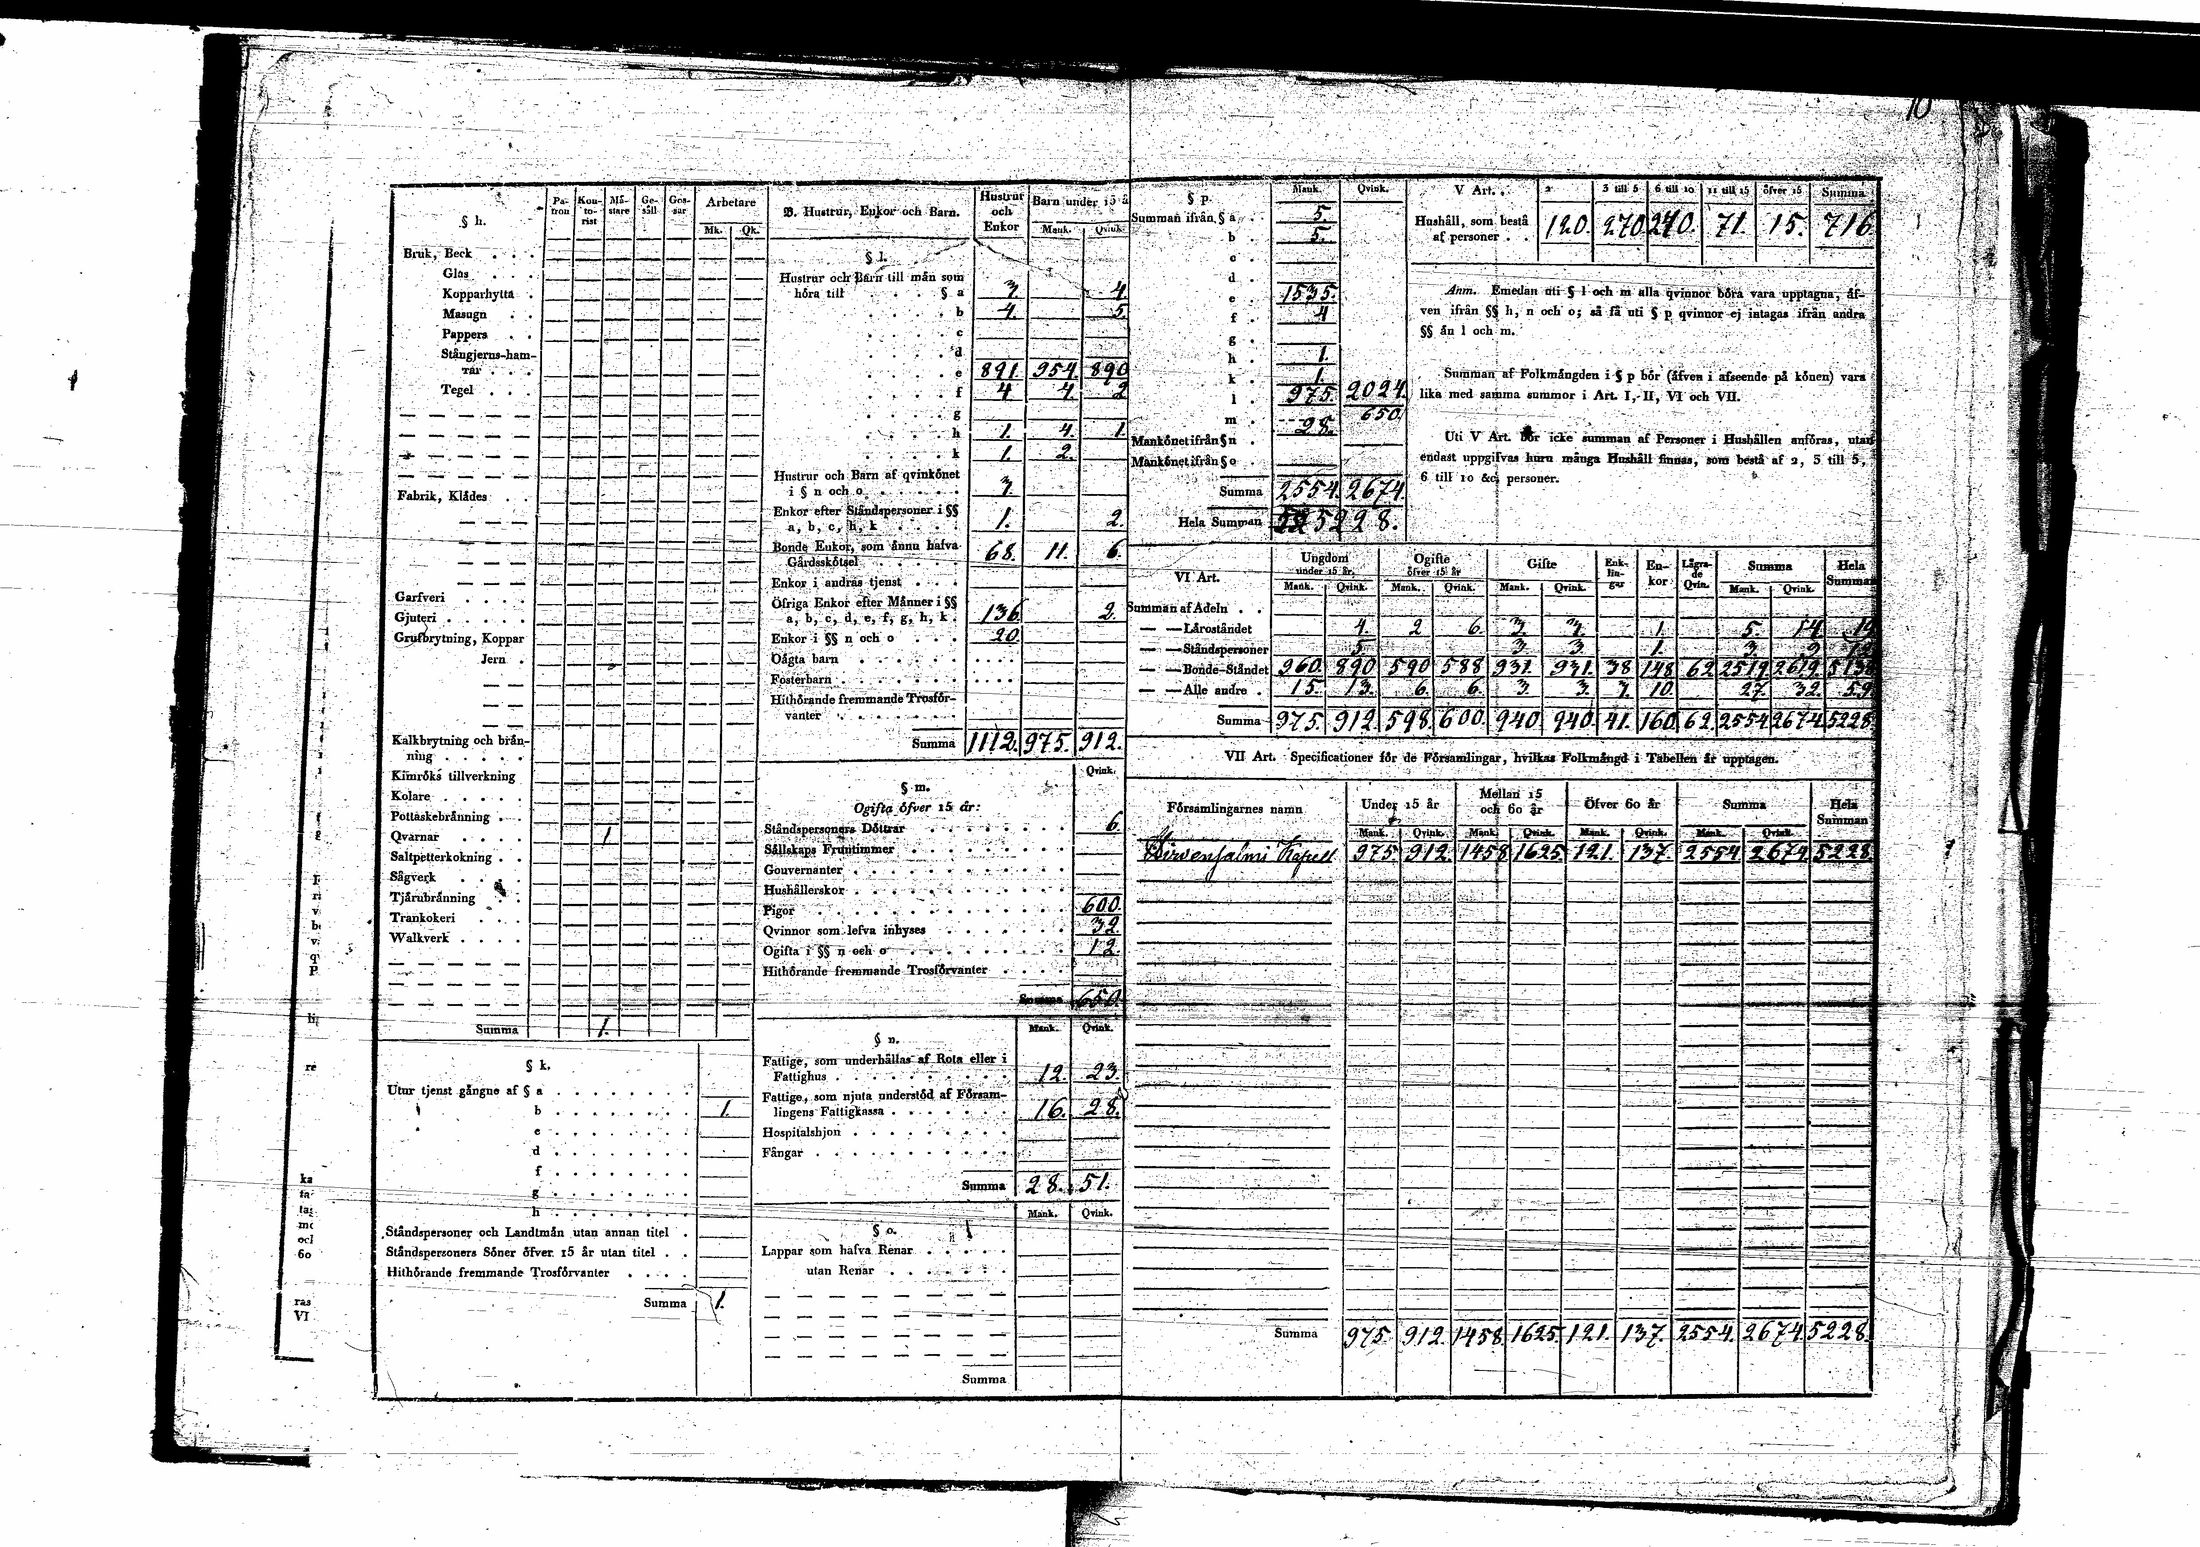 10
§ h.
Pa-tron Kon-to-rist Må-stare Ge-såll Gos-sar Arbetare
Mk. Qk.
Bruk, Beck . . .
Glas . . .
Kopparhytta .
Masugn . .
Pappers . .
Stångjerns-ham-
rar . . .
Tegel . . .
Fabrik, Klådes . .
Garfveri . . . .
Gjuteri . . . . .
Grufbrytning, Koppar
Jern .
Kalkbrytning och brån-
ning . . . . .
Kimröks tillverkning
Kolare . . . . .
Pottaskebrånning . .
Qvarnar . . . . 1
Saltpetterkokning . .
Sågverk . . . .
Tjårubrånning . .
Trankokeri . . .
Walkverk . . . .
Summa 1.
§ k.
Utur tjenst gångne af § a . . . . . . .
b . . . . . . . 1.
c . . . . . . .
d . . . . . . .
f . . . . . . .
g . . . . . . .
h . . . . . . .
Ståndspersoner och Landtmån utan annan titel .
Ståndspersoners Söner öfver 15 år utan titel . .
Hithörande fremmande Trosförvanter . . . .
Summa 1.
B. Hustrur, Enkor och Barn.
Hustrur och Enkor Barn under 15 å
Mank. Qvink.
§ l.
Hustrur och Barn till mån som
höra till . . . . § a 3. 4.
b 4. 5.
c
d
e 891. 954. 890
f 4 4. 2
g
h 1. 4. 1.
k 1. 2.
Hustrur och Barn af qvinkönet
i § n och o . . . . . . 3.
Enkor efter Ståndspersoner i §§
a, b, c, h, k . . . . 1. 2.
Bonde Enkor, som ånnu hafva
Gårdsskötsel . . . . . 68. 11. 6.
Enkor i andras tjenst . . .
Öfriga Enkor efter Månner i §§
a, b, c, d, e, f, g, h, k . 136. 2.
Enkor i §§ n och o . . . 20.
Oågta barn . . . . . .
Fosterbarn . . . . . . .
Hithörande fremmande Trosför-
vanter . . . . . . .
Summa 1112. 975. 912.
Qvink.
§ m.
Ogifta öfver 15 år:
Ståndspersoners Döttrar . . . . . . . 6.
Sållskaps Fruntimmer . . . . . . . .
Gouvernanter . . . . . . . . . .
Hushållerskor . . . . . . . . . .
Pigor . . . . . . . . . . . 600.
Qvinnor som lefva inhyses . . . . . . 32.
Ogifta i §§ n och o . . . . . . . . 12.
Hithörande fremmande Trosförvanter . . . .
Summa 650.
Mank. Qvink.
§ n.
Fattige, som underhållas af Rota eller i
Fattighus . . . . . . . . . 12. 23.
Fattige, som njuta understöd af Försam-
lingens Fattigkassa . . . . . . 16. 28.
Hospitalshjon . . . . . . . . .
Fångar . . . . . . . . . . .
Summa 28. 51.
Mank. Qvink.
§ o.
Lappar som hafva Renar . . . . .
utan Renar . . . . . . .
Summa
§ p. Mank. Qvink.
Summan ifrån § a . . 5.
b . 5.
c .
d .
e . 1535.
f . 4
g .
h . 1.
k . 1.
l . 975. 2024.
m . 650.
Mankönet ifrån § n . 28.
Mankönet ifrån § o .
Summa 2554. 2674.
Hela Summan 5228.
V Art. . 2 3 till 5 6 till 10 11 till 15 öfver 15 Summa
Hushåll, som bestå
af personer . . 120. 270. 240. 71. 15. 716.
Anm. Emedan uti § l och m alla qvinnor böra vara upptagna, åf-
ven ifrån §§ h, n och o; så få uti § p qvinnor ej intagas ifrån andra
§§ ån l och m.
Summan af Folkmångden i § p bör (åfven i afseende på könen) vara
lika med samma summor i Art. I, II, VI och VII.
Uti V Art. bör icke summan af Personer i Hushållen anföras, utan
endast uppgifvas huru många Hushåll finnas, som bestå af 2, 3 till 5,
6 till 10 &c. personer.
VI Art. Ungdom under 15 år. Ogifte öfver 15 år Gifte Enk-lin-gar En-kor Lågra-de Qvin. Summa Hela Summan
Mank. Qvink. Mank. Qvink. Mank. Qvink. Mank. Qvink.
Summan af Adeln . .
— — Låroståndet 4. 2 6. 3. 3. 1. 5. 14. 19
— — Ståndspersoner 5. 3. 3. 1. 3. 9. 12
— — Bonde-Ståndet 960. 890. 590. 588. 931. 931. 38 148. 62 2519. 2619. 5138
— — Alle andre . 15. 13. 6. 6. 3. 3. 3. 10. 27. 32. 59
Summa 975. 912. 598. 600. 940. 940. 41. 160. 62. 2554. 2674. 5228.
VII Art. Specificationer för de Församlingar, hvilkas Folkmångd i Tabellen år upptagen.
Församlingarnes namn Under 15 år Mellan 15 och 60 år Öfver 60 år Summa Hela Summan
Mank. Qvink. Mank. Qvink. Mank. Qvink. Mank. Qvink.
Hirvensalmi Kapell 975. 912. 1458. 1625. 121. 137. 2554 2674 5228.
Summa 975. 912. 1458. 1625. 121. 137. 2554. 2674. 5228.